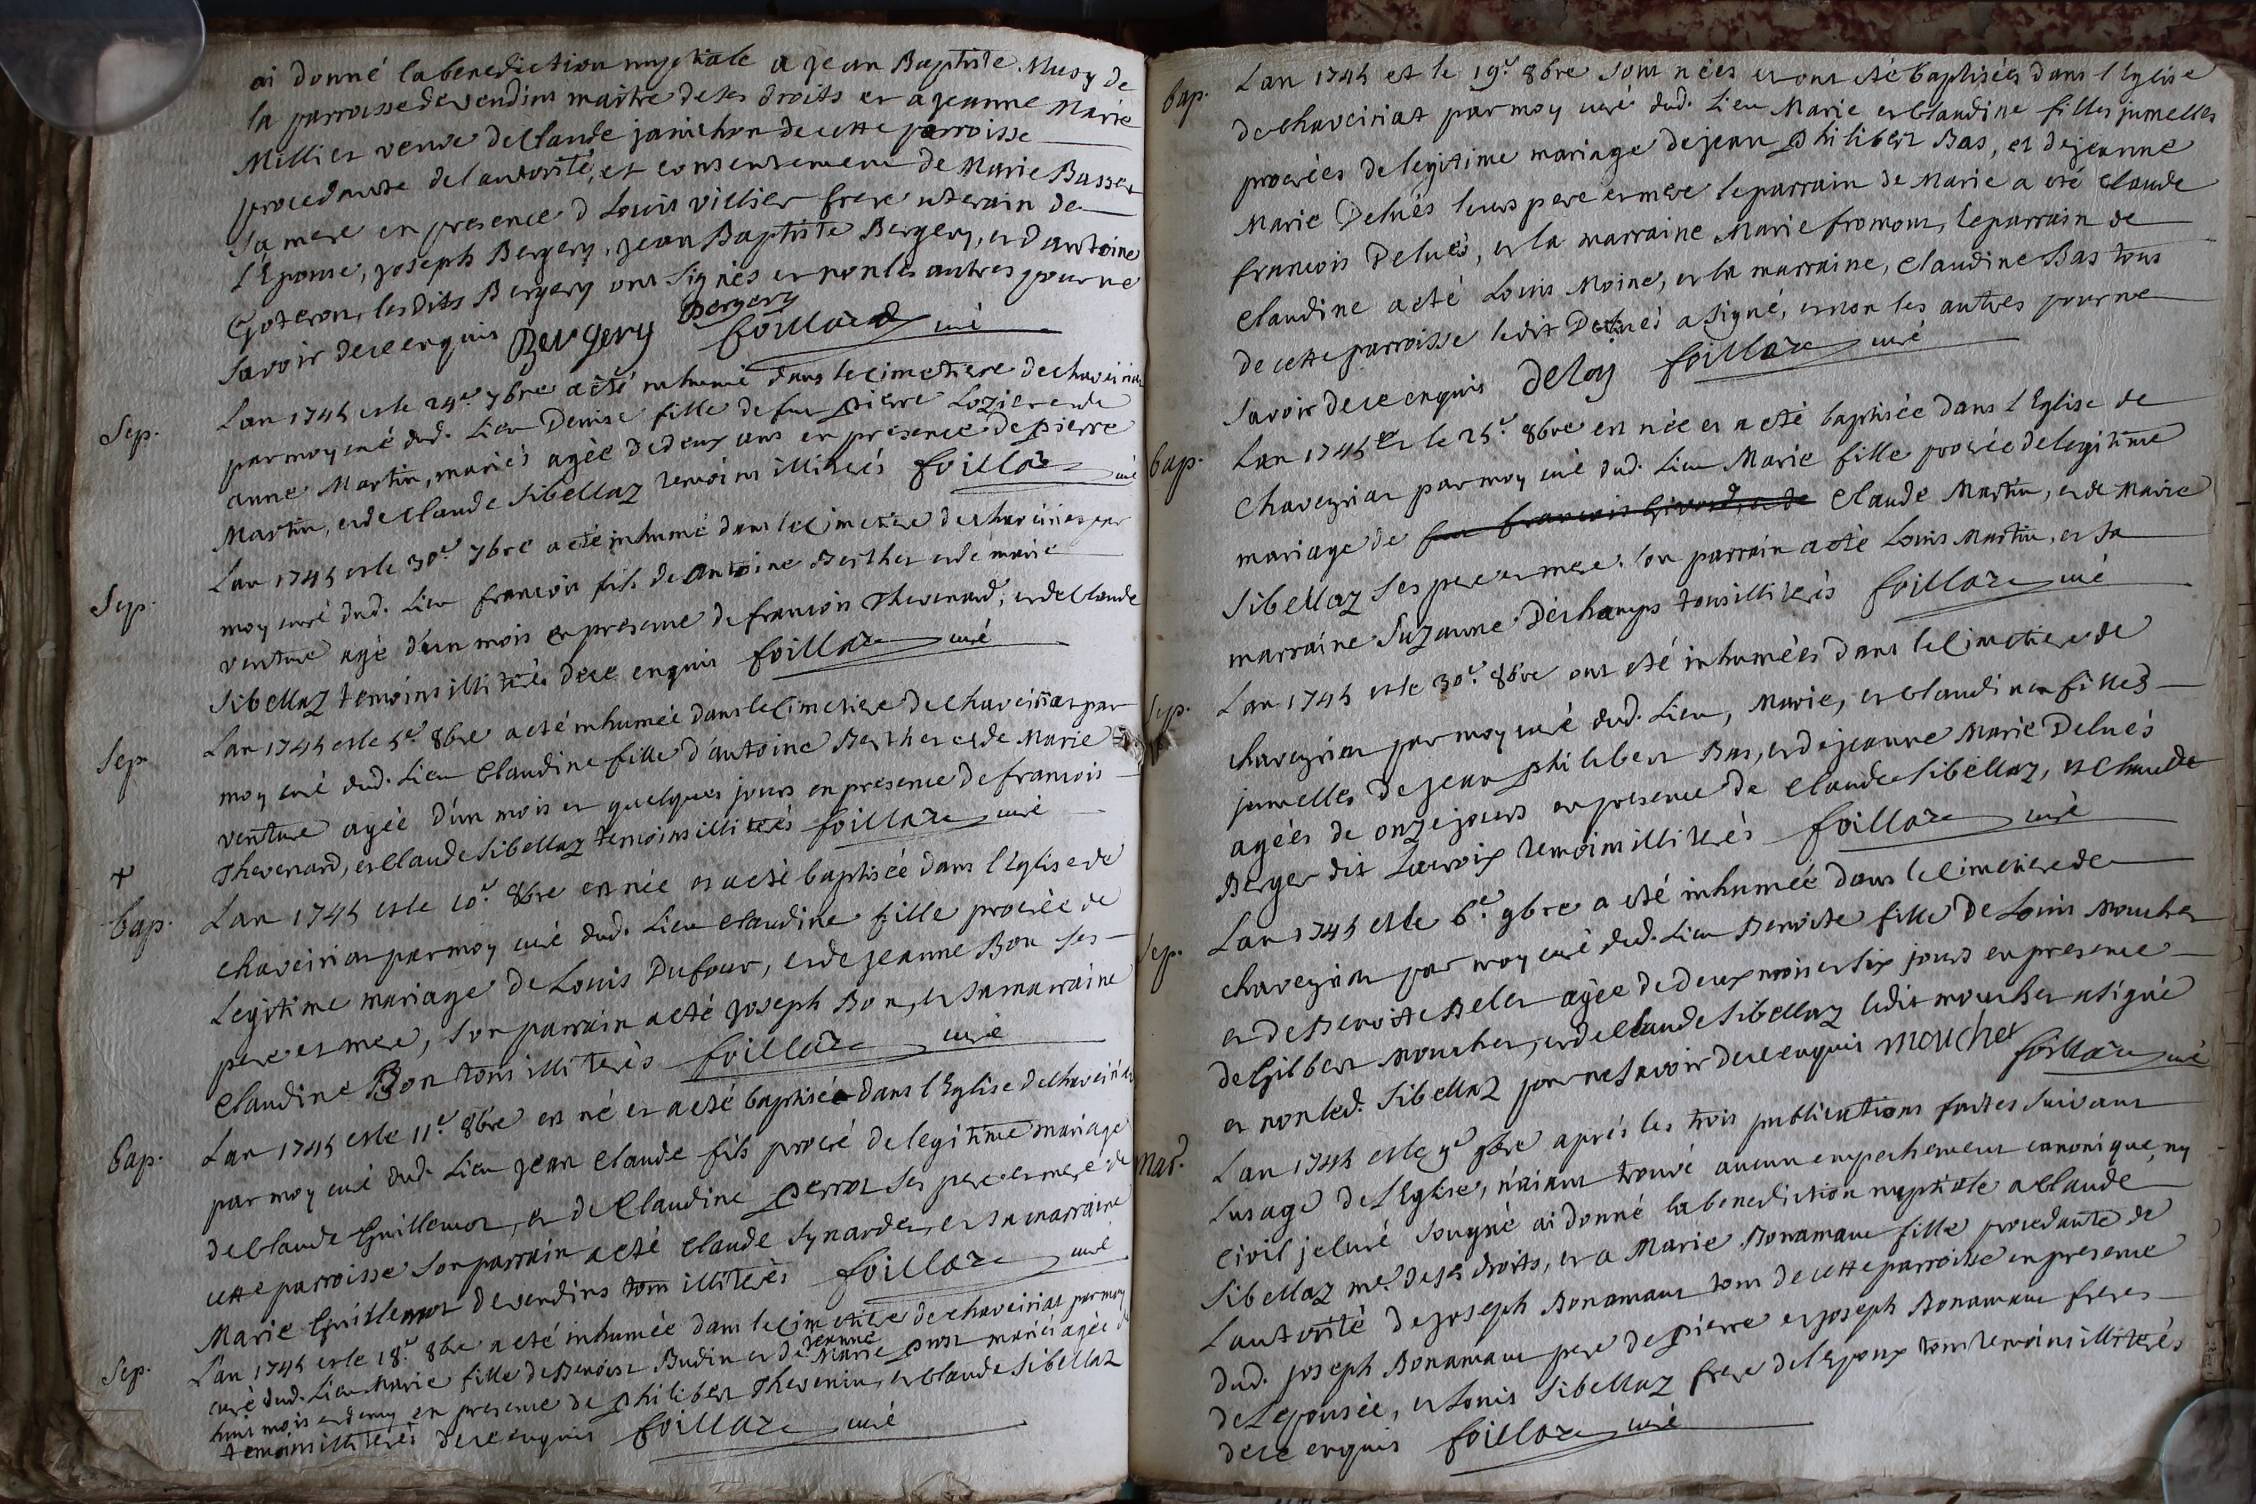 ai donné la benediction nuptiale a jean Baptiste Musy de
la parroisse de vendins maitre de ses droits et a jeanne Marie
Millier veuve de Claude janichon de cette parroisse
procedante de lautorité, et consentement de Marie Basset
sa mere en presence d Louis villier frere uterain de
l'Epouse, joseph Bergery, jean Baptiste Bergery, et d'antoine
Goteron, lesdits Bergery ont signés et non les autres pour ne
savoir de ce enquis Bergery Bergery foillard curé
Sep. Lan 1745 et le 24e. 7bre a été inhumé dans le cimetiere de chaveiriat
par moy curé dud. Lieu Denise fille de feu pierre Lozier et de
anne Martin, mariés agée de deux ans en presence de pierre
Martin, et de Claude Sibellaz temoins illiterés foillard curé
Sep. Lan 1745 et le 30e. 7bre a été inhumé dans le cimetiere de chaveiriat par
moy curé dud. Lieu francois fils de antoine Berthet et de marie
venture agé d'un mois en presence de francois Thevenard, et de Claude
Sibellaz temoins illiterés de ce enquis foillard curé
Sep. Lan 1745 et le 5e. 8bre a eté inhumée dans le cimetiere de chaveiriat par
moy curé dud. Lieu Claudine fille d'antoine Berthet et de Marie
venture agée d'un mois et quelques jours en presence de francois
Thevenard, et Claude Sibellaz temoins illiterés foillard curé
+
bap. Lan 1745 et le 10e. 8bre est née et a eté baptisée dans l'Eglise de
chaveiriat par moy curé dud. Lieu Claudine fille procréée de
Legitime mariage de Louis Dufour, et de jeanne Bon ses
pere et mere, son parrain a eté joseph Bon, et sa marraine
Claudine Bon tous illiterés foillard curé
bap. Lan 1745 et le 11e. 8bre est né et a eté baptisée dans l'Eglise de chaveiriat
par moy curé dud. Lieu jean Claude fils procréé de legitime mariage
de Claude Guillemot, et de Claudine perrot ses pere et mere de
cette parroisse son parrain a eté Claude Synardet, et sa marraine
Marie Guillemot de vendins tous illiterés foillard curé
Sep. Lan 1745 et le 18e. 8bre a eté inhumée dans le cimetiere de chaveiriat par moy
curé dud. Lieu Marie fille de Benoist Budin et de jeanne Marie mariés agée de
huit mois et demy en presence de philibert Thevenin, et Claude Sibellaz
temoins illiterés de ce enquis foillard curé
bap. Lan 1745 et le 19e. 8bre sont nées et ont eté baptisées dans l'Eglise
de chaveiriat par moy curé dud. Lieu Marie et Claudine filles jumelles
procréées de legitime mariage de jean philibert Bas, et de jeanne
Marie Delués leurs pere et mere le parrain de Marie a eté Claude
francois Delués, et la marraine Marie fromont, le parrain de
Claudine a eté Louis Moine, et la marraine, Claudine Bas tous
de cette parroisse ledit Delués a signé, et non les autres pour ne
savoir de ce enquis Deloy foillard curé
bap. Lan 1745 et le 25e. 8bre est née et a eté baptisée dans l'Eglise de
chaveyriat par moy curé dud. Lieu Marie fille procréée de legitime
mariage de Claude Martin, et de Marie
Sibellaz ses pere et mere. son parrain a eté Louis Martin, et sa
marraine Suzanne Deschamps tous illiterés foillard curé
Sep. Lan 1745 et le 30e. 8bre ont eté inhumées dans le cimetiere de
chaveyriat par moy curé dud. Lieu, Marie, et Claudine filles
jumelles de jean philibert Bas, et de jeanne Marie Delués
agées de onze jours en presence de Claude Sibellaz, et Claude
Berger dit Lacroix temoins illiterés foillard curé
Sep. Lan 1745 et le 6e. 9bre a eté inhumée dans le cimetiere de
chaveyriat par moy curé dud. Lieu Benoite fille de Louis Mouchet
et de Benoitte Belet agée de deux mois et six jours en presence
de Gilbert Mouchet, et de Claude Sibellaz ledit mouchet a signé
et non led. Sibellaz pour ne savoir de ce enquis mouchet foillard curé
mar. Lan 1745 et le 9e 9bre aprés les trois publications faites suivant
Lusage de l'Eglise, n'aiant trouvé aucun empechement canonique, ny
civil je curé sousigné ai donné la benediction nuptiale a Claude
Sibellaz me. de ses droits, et a Marie Bonamant fille procedante de
Lautorité de joseph Bonamant tous de cette parroisse en presence
dud. joseph Bonamant pere de pierre et joseph Bonamant freres
de L'epousée, et Louis Sibellaz frere de l'epoux tous temoins illiterés
de ce enquis foillard curé